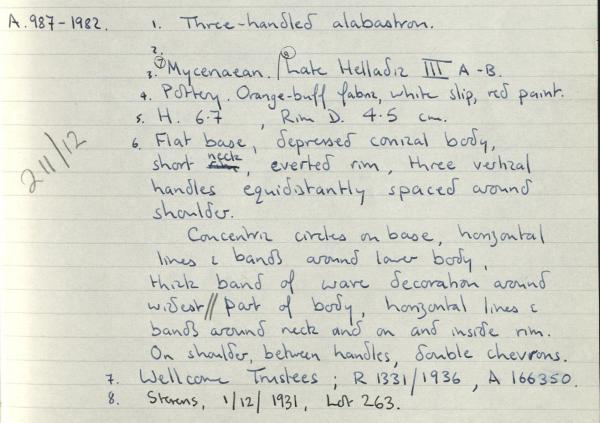 A.987-1982. 1. Three-handled alabastron.
2.
3. (7) Mycenaean. / (8) Late Helladic III A-B.
4. Pottery. Orange-buff fabric, white slip, red paint.
5. H. 6.7 , Rim D. 4.5 cm.
6. Flat base, depressed conical body,
short neck, everted rim, three vertical
handles equidistantly spaced around
shoulder.
Concentric circles on base, horizontal
lines & bands around lower body,
thick band of wave decoration around
widest // part of body, horizontal lines &
bands around neck and on and inside rim.
On shoulder, between handles, double chevrons.
7. Wellcome Trustees ; R 1331/1936 , A 166350.
8. Stevens, 1/12/1931, Lot 263.
211/12